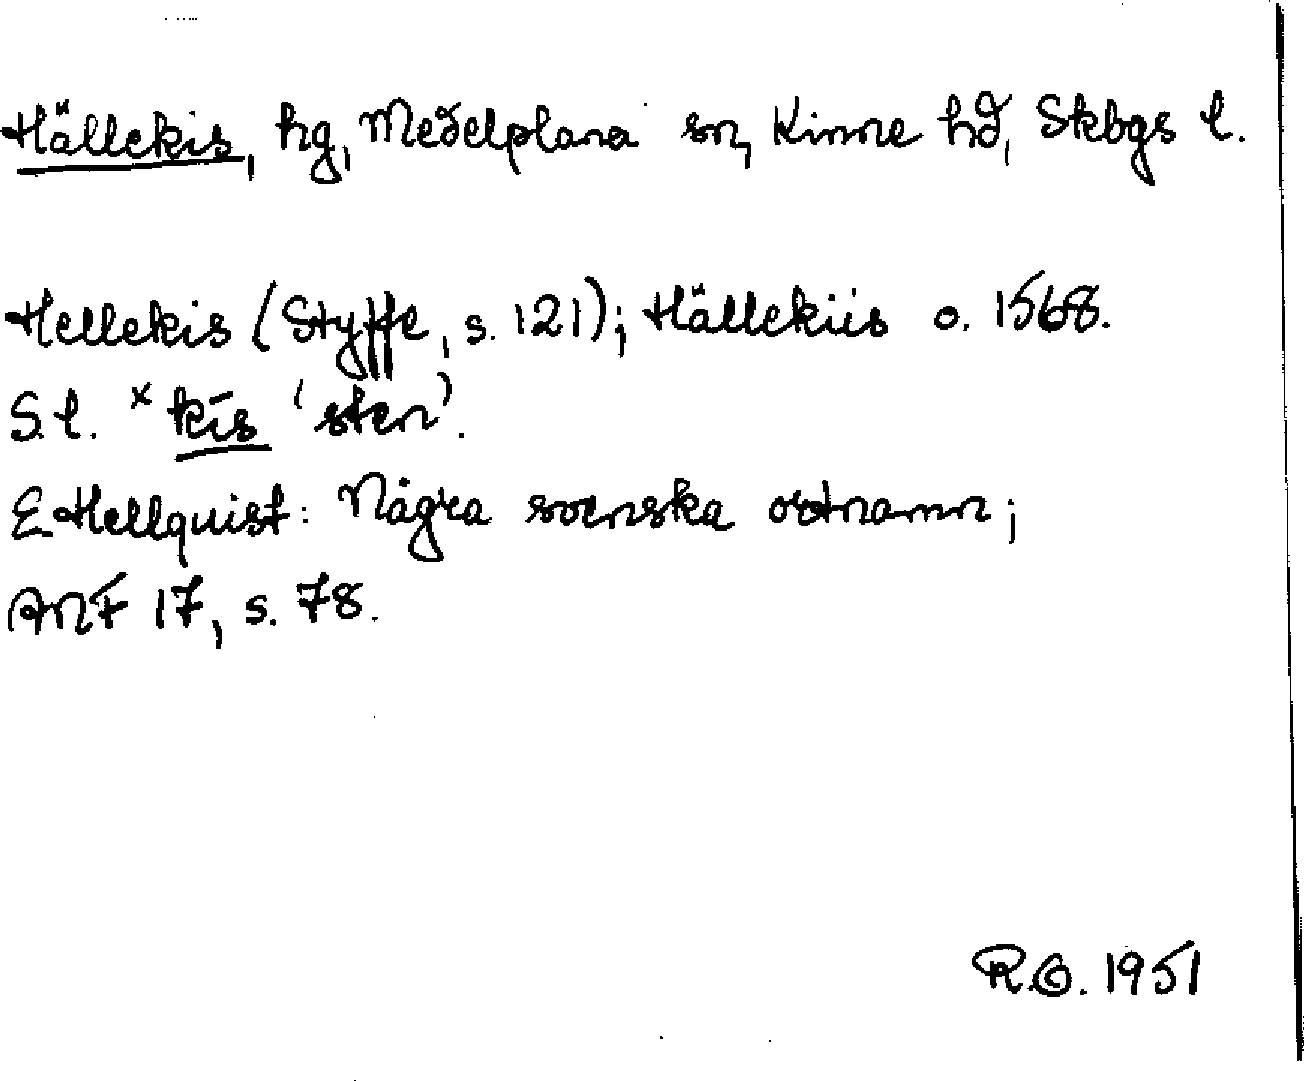 Hällekis, hg, Medelplana sn, Kinne hd, Skbgs l.
Hellekis (Styffe, s. 121); Hällekiis o. 1568.
S.l. *kīs 'sten'.
E Hellquist: Några svenska ortnamn;
ANF 17, s. 78.
R.O. 1951